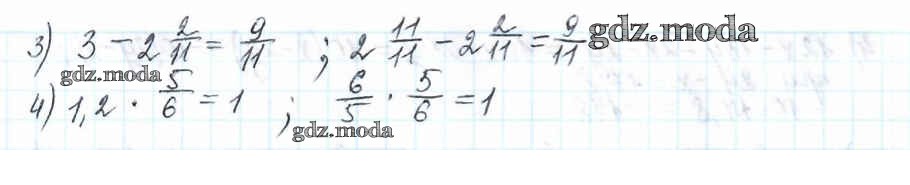 3) 3 - 2 2/11 = 9/11 ; 2 11/11 - 2 2/11 = 9/11 gdz.moda
gdz.moda
4) 1,2 · 5/6 = 1 ; 6/5 · 5/6 = 1
gdz.moda